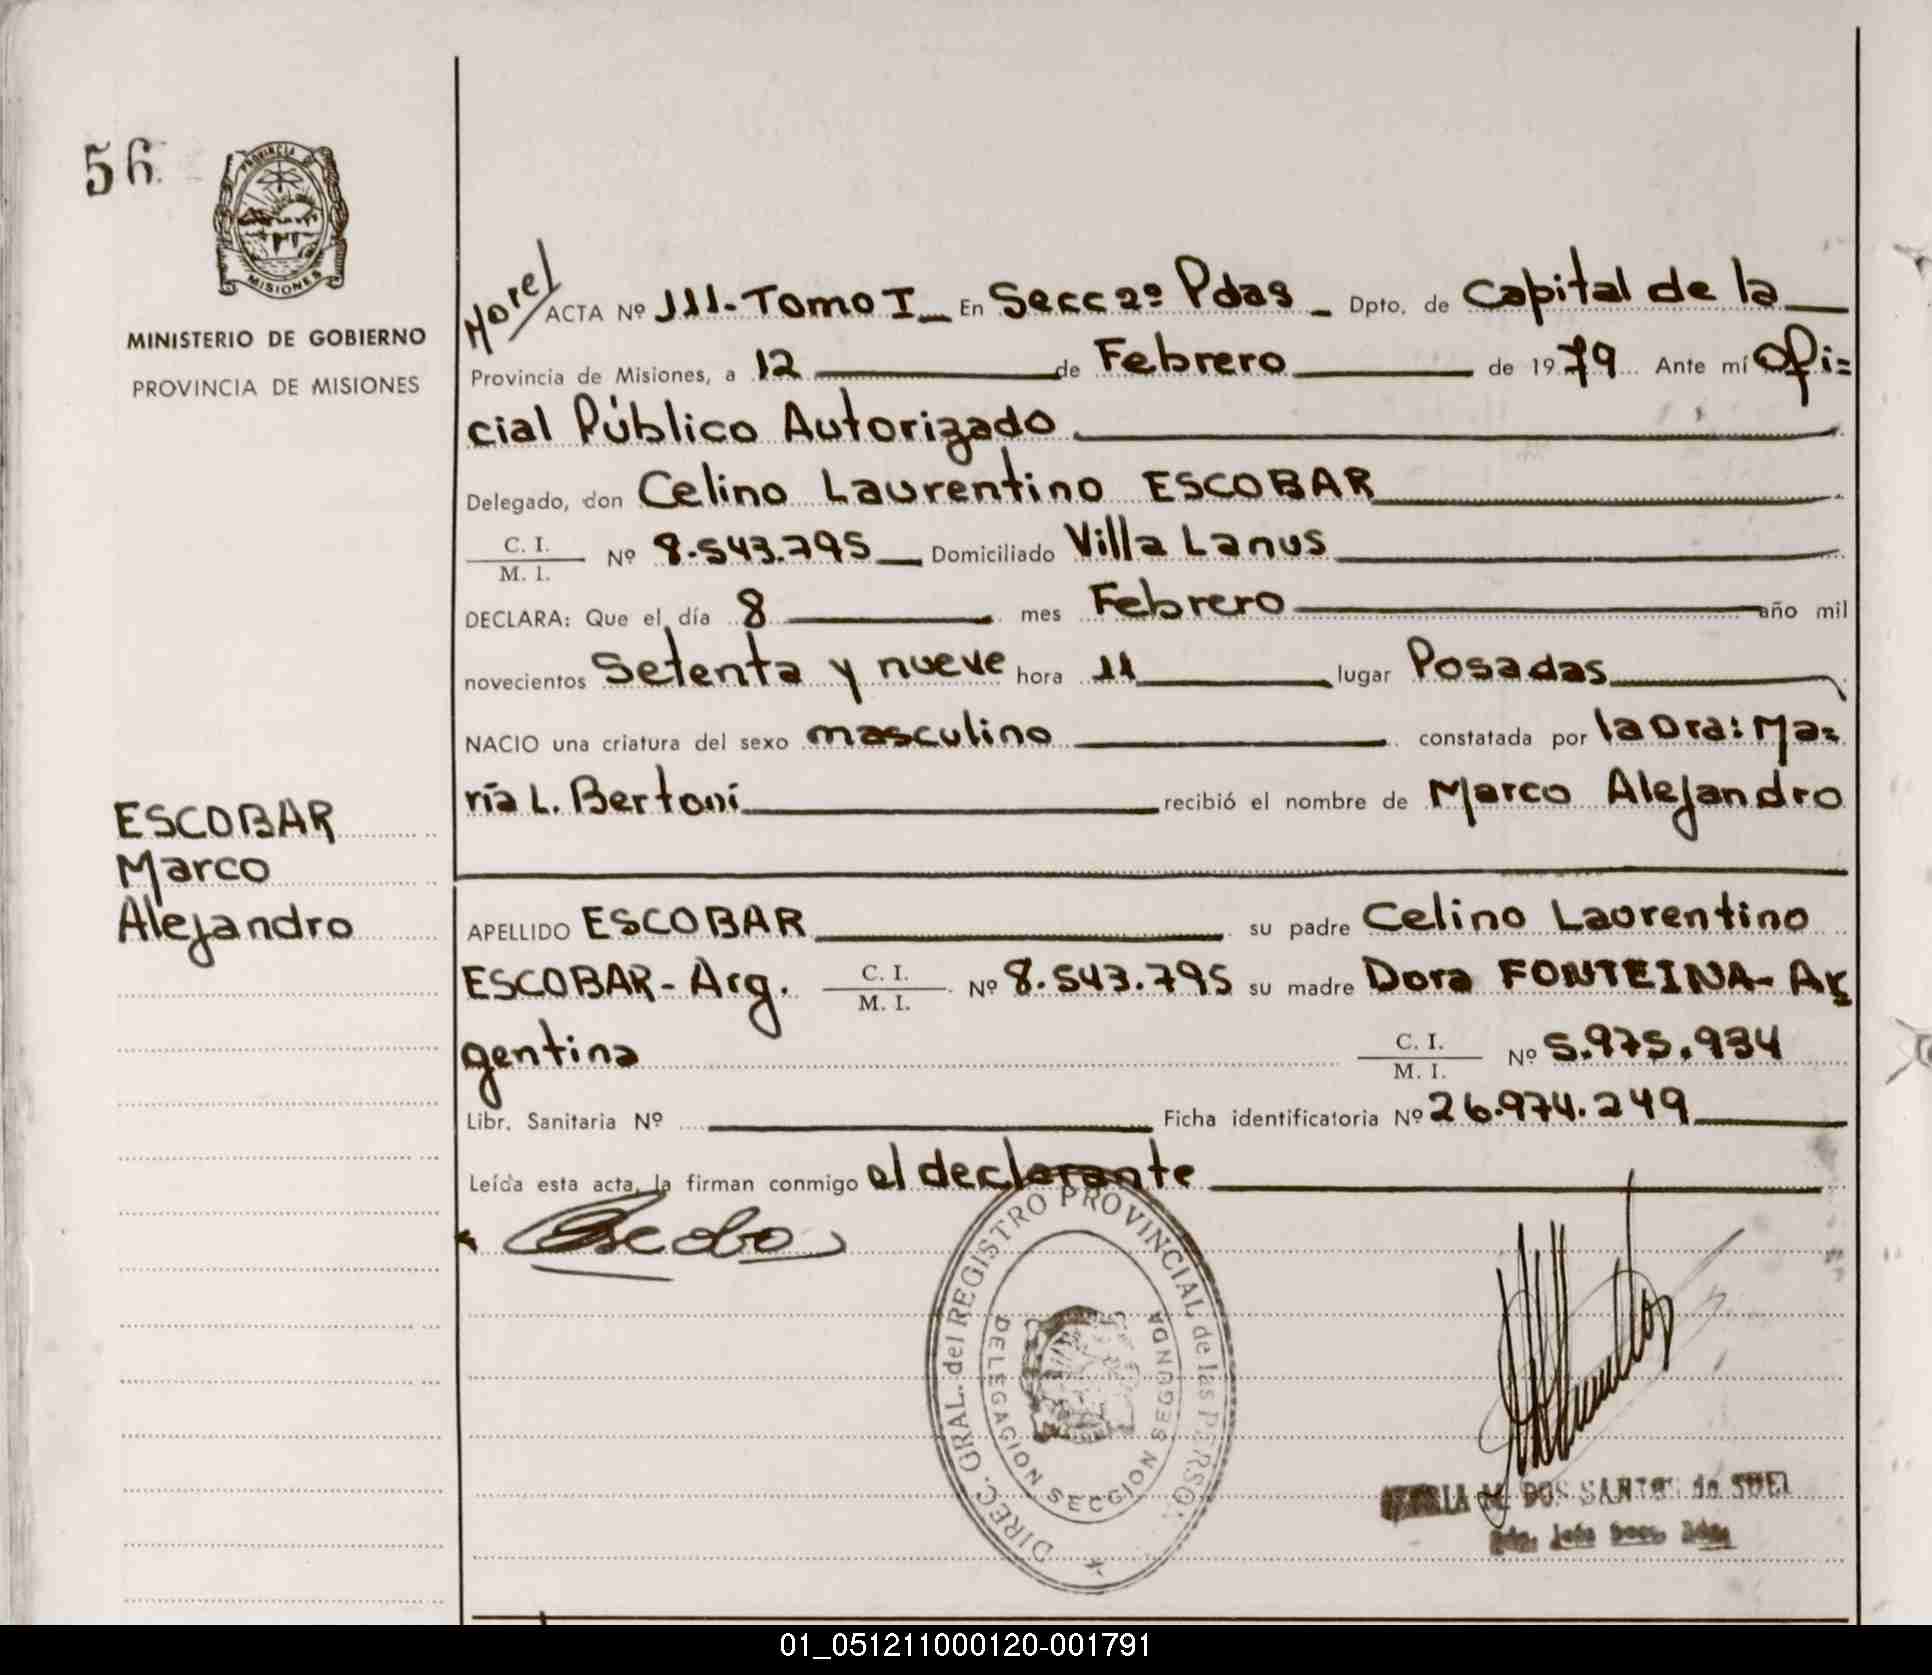 56
PROVINCIA DE
MISIONES
MINISTERIO DE GOBIERNO
PROVINCIA DE MISIONES
ESCOBAR
Marco
Alejandro
Morel
ACTA Nº 111-Tomo I_ En Secc 2º Pdas_ Dpto. de Capital de la
Provincia de Misiones, a 12 de Febrero de 1979 Ante mí Ofi=
cial Público Autorizado
Delegado, don Celino Laurentino ESCOBAR
C. I.
M. I. Nº 8.543.795 Domiciliado Villa Lanus
DECLARA: Que el día 8 mes Febrero año mil
novecientos Setenta y nueve hora 11 lugar Posadas
NACIO una criatura del sexo masculino constatada por la Dra: Ma=
ría L. Bertoni recibió el nombre de Marco Alejandro
APELLIDO ESCOBAR su padre Celino Laurentino
ESCOBAR- Arg. C. I. M. I. Nº 8.543.795 su madre Dora FONTEINA- Ar
gentina C. I. M. I. Nº 5.975.934
Libr. Sanitaria Nº Ficha identificatoria Nº 26.974.249
Leída esta acta, la firman conmigo el declarante
DIREC. GRAL. del REGISTRO PROVINCIAL de las PERSO.
DELEGACION SECCION SEGUNDA
M. DOS SANTOS de
01_051211000120-001791